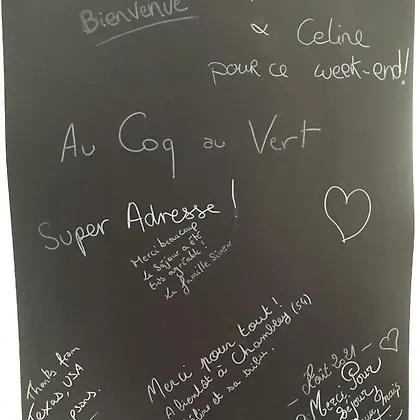 Bienvenue
& Celine
pour ce week-end!
Au Coq au Vert
Super Adresse !
Merci beaucoup
Le séjour a été
très agréable !
La famille
Merci pour tout !
A bientôt à Chambley (54)
et sa tribu.
Thanks from
Texas, USA
Août 2021
Merci Pour
séjour
mais